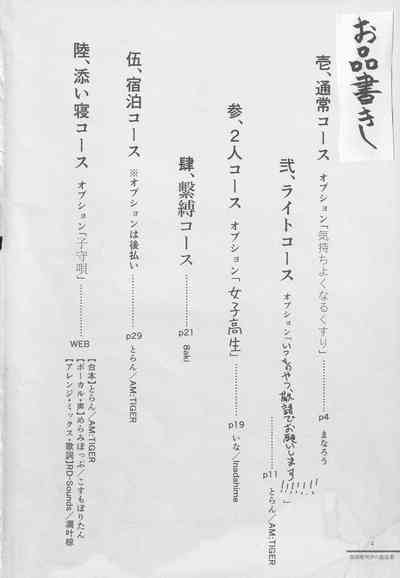 お品書きし
壱、通常コース オプション「気持ちよくなるくすり」…………p4 まなろう
弐、ライトコース オプション「いつものやつ、敬語でお願いします!!!!!!」…………p11 とらん/AM:TIGER
参、2人コース オプション「女子高生」…………p19 いな/Inadahime
肆、繫縛コース…………p21 8aki
伍、宿泊コース ※オプションは後払い…………p29 とらん/AM:TIGER
陸、添い寝コース オプション「子守唄」…………WEB
【台本】とらん/AM:TIGER
【ボーカル・声】めらみぽっぷ/こすもぽりたん
【アレンジ・ミックス・歌詞】RD-Sounds/凋叶棕